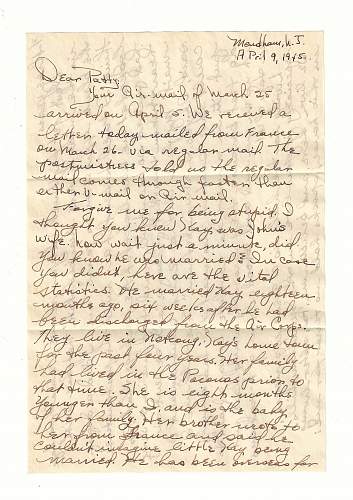 Mendham, N.J.
April 9, 1945.
Dear Patty,
Your Air-mail of March 25
arrived on April 5. We received a
letter today mailed from France
on March 26 via regular mail. The
postmistress told us the regular
mail comes through faster than
either V-mail or Air mail.
Forgive me for being stupid. I
thought you knew Kay was John's
wife. Now wait just a minute, did
you know he was married? In case
you didn't, here are the vital
statistics. He married Kay eighteen
months ago, six weeks after he had
been discharged from the Air Corps.
They live in Netcong, Kay's home town
for the past four years. Her family
had lived in the Poconos prior to
that time. She is eight months
younger than I, and is the baby
of her family. Her brother wrote to
her from France and said he
couldn't imagine little Kay being
married. He has been overseas for